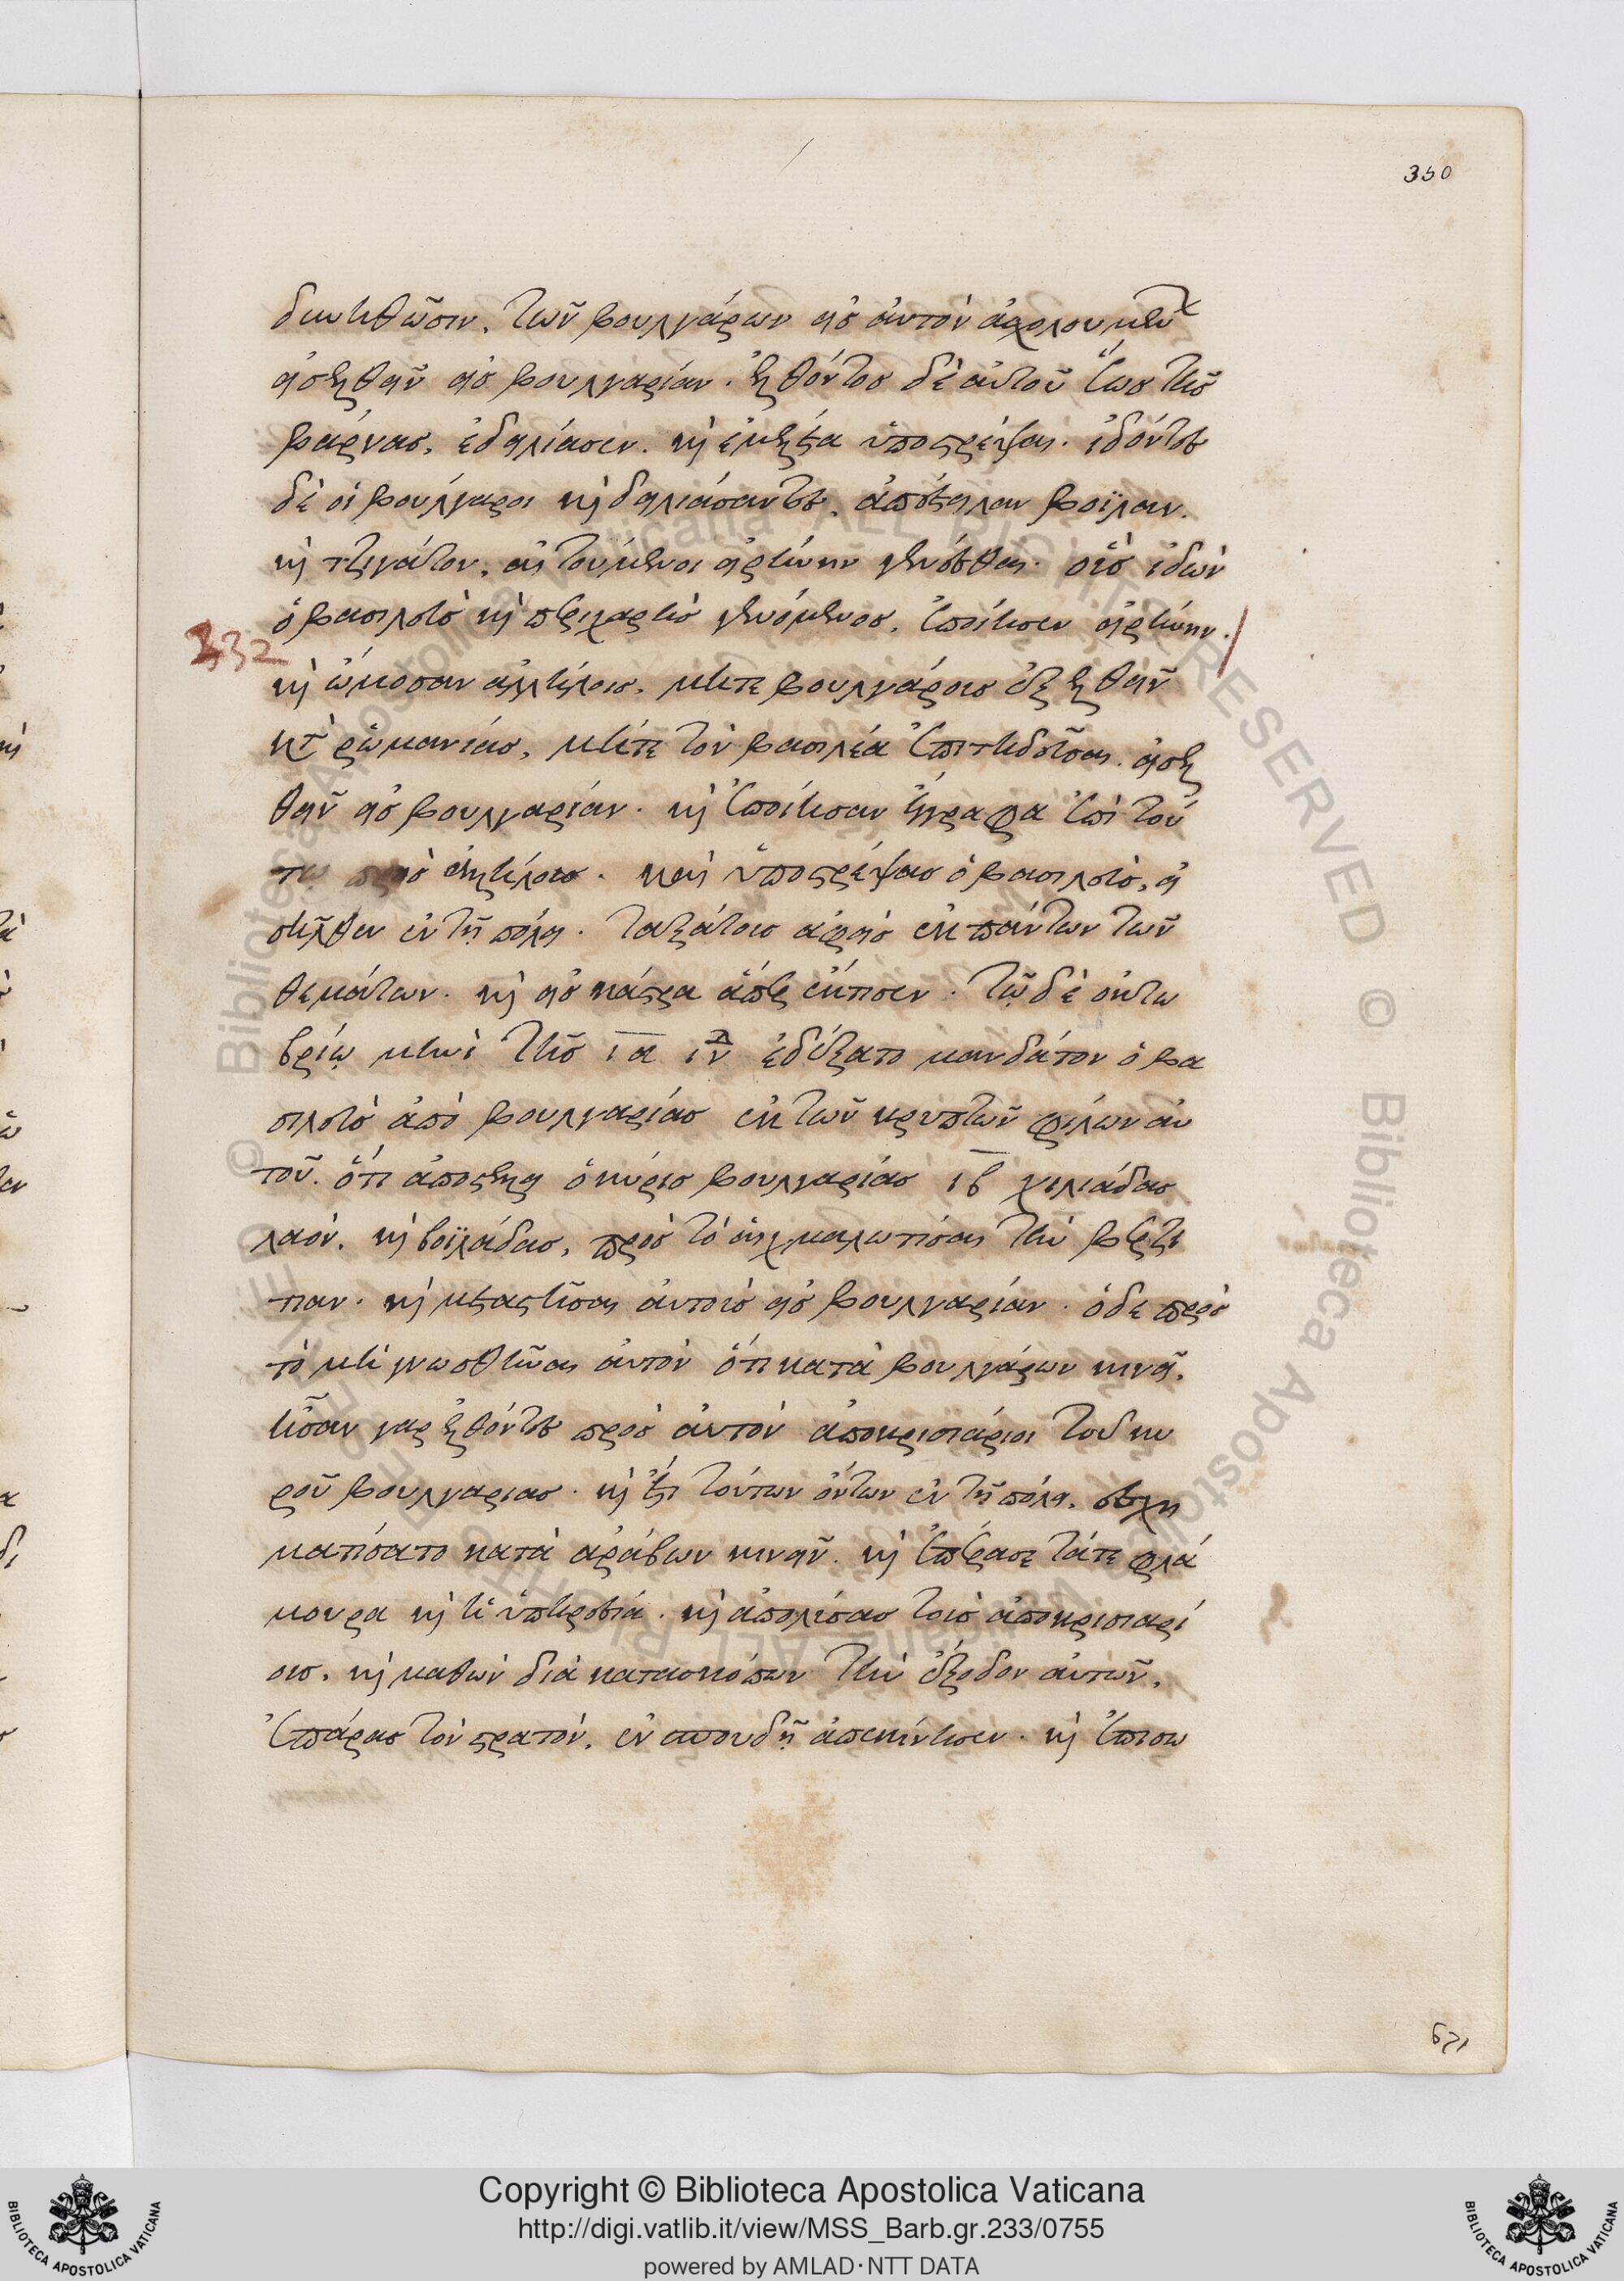 350
δυνηθῶσιν. τῶν βουλγάρων εἰς αὐτὸν ἀσχολουμένων
εἰσελθεῖν εἰς βουλγαρίαν. ἐλθόντος δὲ αὐτοῦ ἕως τῆς
βάρνας, ἐδειλίασεν. καὶ ἐμελέτα ὑποστρέψαι. ἰδόντες
δὲ οἱ βούλγαροι καὶ δειλιάσαντες, ἀπέστειλαν βοϊλαν.
καὶ τζιγάτον, αἰτούμενοι εἰρήνην γενέσθαι. οὓς ἰδὼν
ὁ βασιλεὺς καὶ περιχαρὴς γενόμενος, ἐποίησεν εἰρήνην.
332
καὶ ὤμοσαν ἀλλήλοις, μήτε βουλγάροις ἐξελθεῖν
κατὰ ῥωμανίας, μήτε τὸν βασιλέα ἐπιτηδεῦσαι εἰσελ
θεῖν εἰς βουλγαρίαν. καὶ ἐποίησαν ἔγγραφα ἐπὶ τού
τῳ πρὸς ἀλλήλους. καὶ ὑποστρέψας ὁ βασιλεὺς, εἰ
σῆλθεν ἐν τῇ πόλει. ταξάτους ἀφεὶς ἐκ πάντων τῶν
θεμάτων. καὶ εἰς κάστρα ἅπερ ἔκτισεν. τῷ δὲ ὀκτω
βρίῳ μηνὶ τῆς ια ἰνδ ἐδέξατο μανδάτον ὁ βα
σιλεὺς ἀπὸ βουλγαρίας ἐκ τῶν κρυπτῶν φίλων αὐ
τοῦ. ὅτι ἀποστέλλει ὁ κύρις βουλγαρίας ιβ χιλιάδας
λαὸν. καὶ βοϊλάδας, πρὸς τὸ αἰχμαλωτίσαι τὴν βερζι
τιαν. καὶ μεταστῆσαι αὐτοὺς εἰς βουλγαρίαν. ὁ δε πρὸς
τὸ μὴ γνωσθῆναι αὐτὸν ὅτι κατὰ βουλγάρων κινεῖ.
ἦσαν γαρ ἐλθόντες πρὸς αὐτὸν ἀποκρισιάριοι τοῦ κυ
ροῦ βουλγαριας. καὶ ἔτι τούτων ὄντων ἐν τῇ πόλει. ἐσχη
ματίσατο κατὰ ἀράβων κινεῖν. καὶ ἐπέρασε τάτε φλά
μουρα καὶ ἡ ὑπηρεσία. καὶ ἀπολύσας τοὺς ἀποκρισιαρί
ους, καὶ μαθὼν διὰ κατασκόπων τὴν ἔξοδον αὐτῶν,
ἐπάρας τὸν στρατὸν, ἐν σπουδῇ ἀπεκίνησεν. καὶ ἐπισω
Copyright © Biblioteca Apostolica Vaticana
http://digi.vatlib.it/view/MSS_Barb.gr.233/0755
powered by AMLAD·NTT DATA